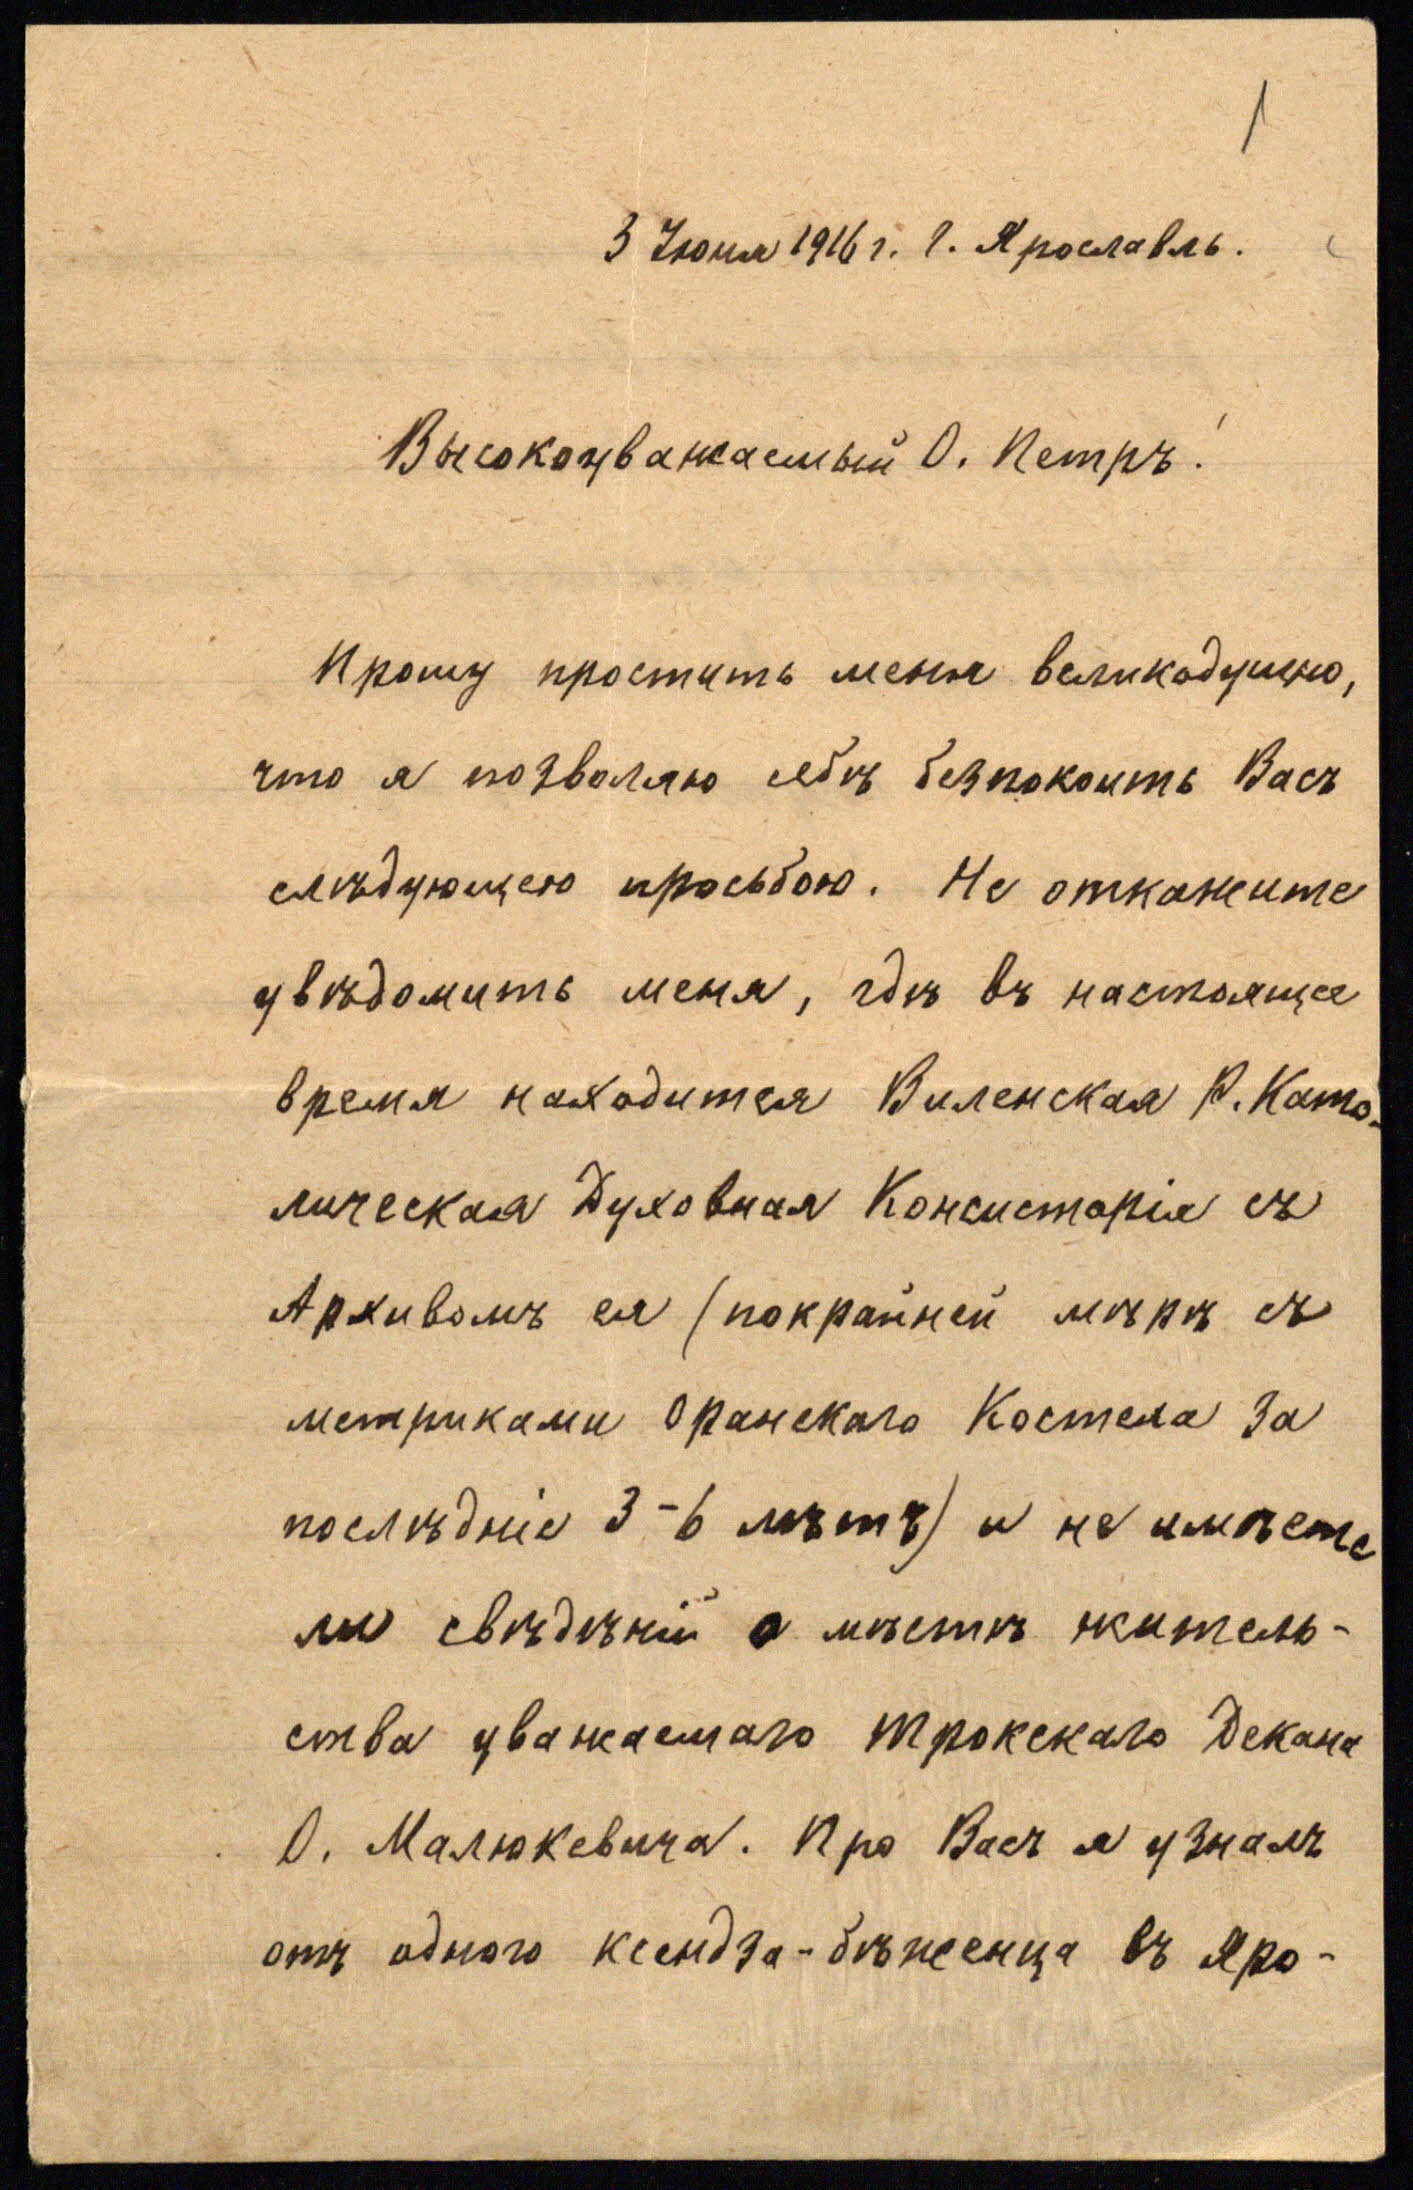 1
3 Июня 1916 г. г. Ярославль.
Высокоуважаемый О. Петръ!
Прошу простить меня великодушно,
что я позволяю себѣ безпокоить Васъ
слѣдующею просьбою. Не откажите
увѣдомить меня, гдѣ въ настоящее
время находится Виленская Р. Като-
лическая Духовная Консисторія съ
Архивомъ ея (покрайней мѣрѣ съ
метриками Оранскаго Костела за
послѣдніе 3-6 лѣтъ) и не имѣете
ли свѣдѣній о мѣстѣ житель-
ства уважаемаго Трокскаго Декана
О. Малюкевича. Про Васъ я узналъ
отъ одного ксендза-бѣженца въ Яро-